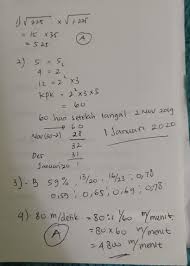 1) √225 × √1225
= 15 × 35
= 525
(A)
2) 5 = 5
4 = 2²
12 = 2² × 3
KPK = 2² × 3 × 5
= 60
60 hari setelah tanggal 2 Nov 2019
→ 60
Nov (30-2) 28
32
Des 31
Januari 20 1
1 Januari 2020
3) - B 59%, 13/20, 16/23, 0,78
0,59; 0,65; 0,69; 0,78
4) 80 m/detik = 80 : 1/60 m/menit
(A)
= 80 × 60 m/menit
= 4800 m/menit